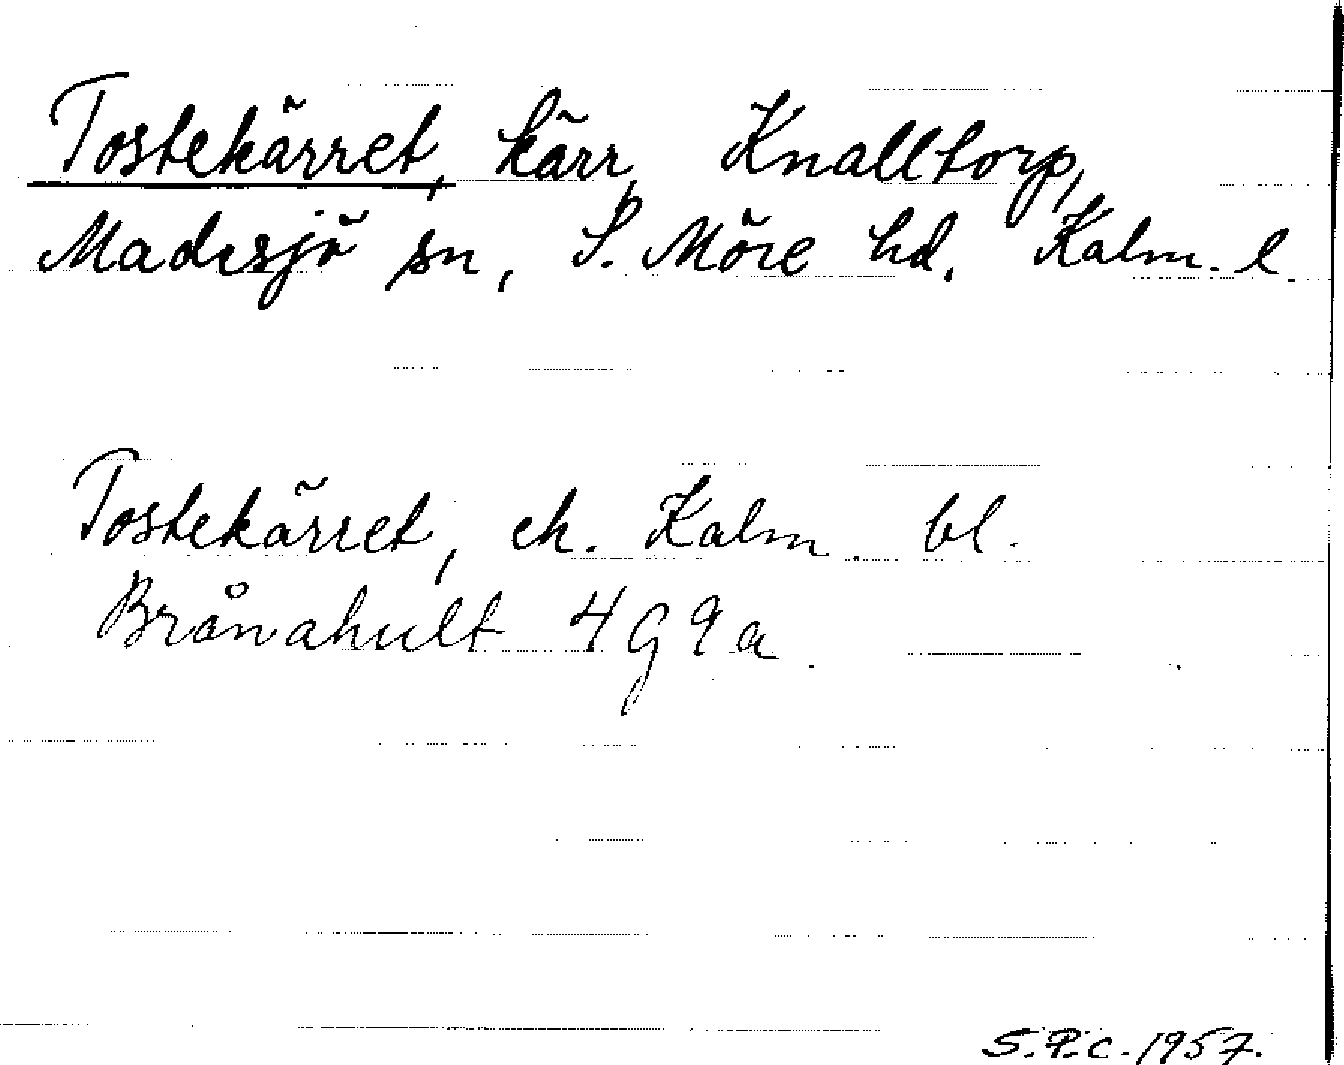 Tostekärret, kärr, Knalltorp,
Madesjö sn, S. Möre hd. Kalm. l.
Tostekärret, ek. Kalm. bl.
Brånahult 4G9a.
S.P.C. 1957.